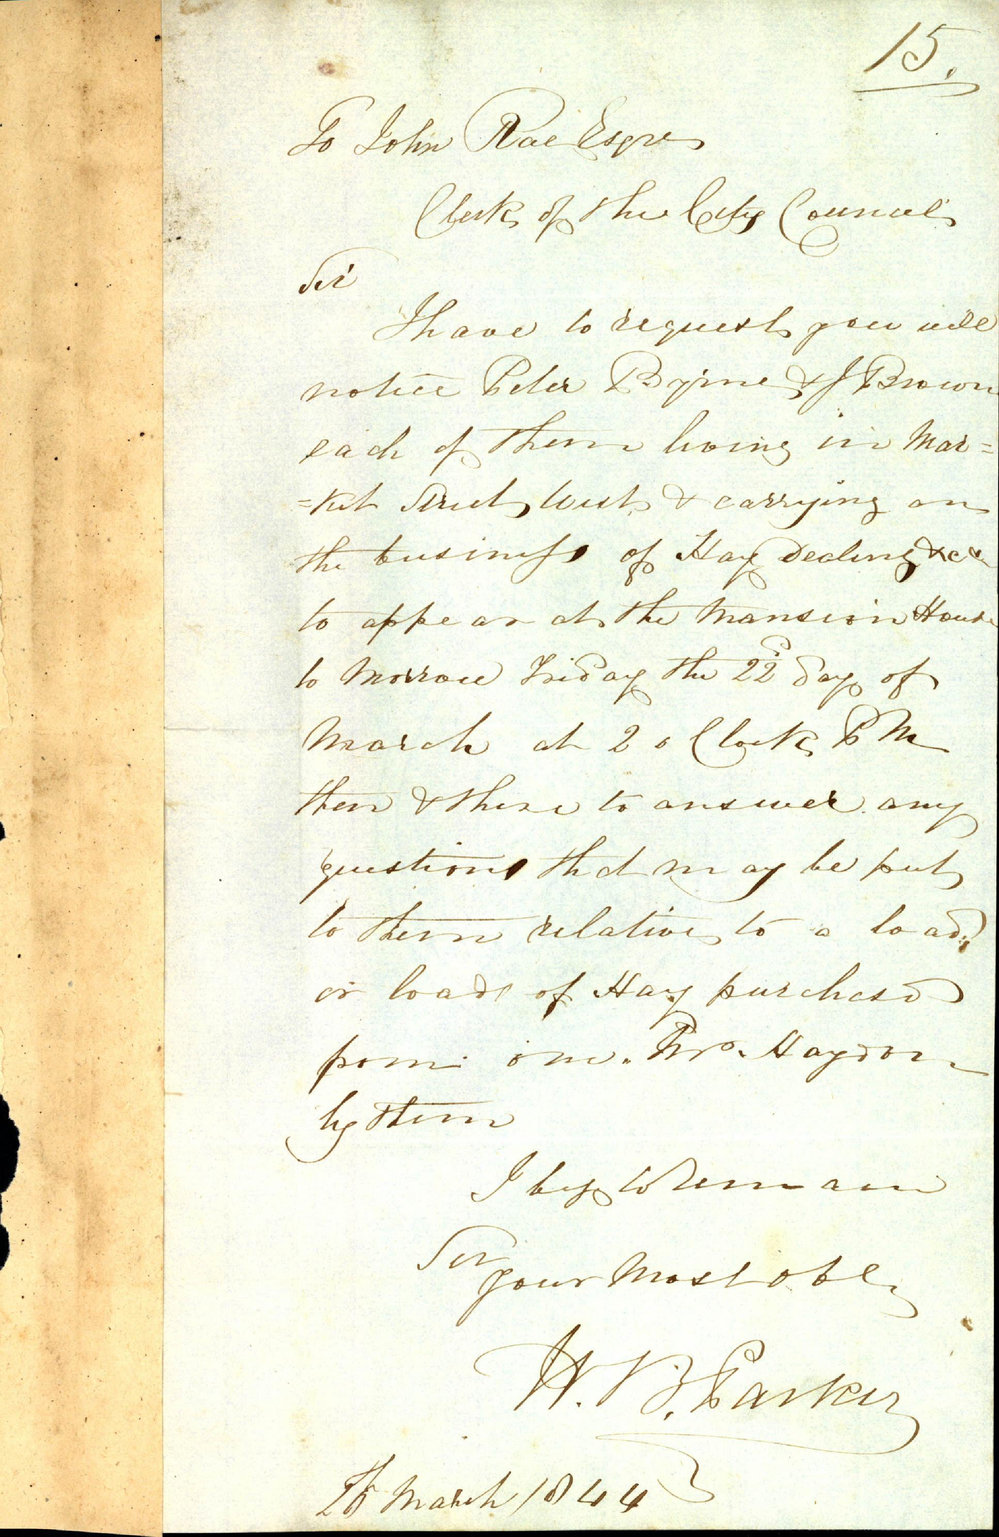 15.
To John Rae Esqre
Clerk of the City Council
Sir
I have to request you will
notice Peter Byrne & J Brown
each of them living in Mar=
=ket Street West & carrying on
the business of Hay dealing &c
to appear at the Mansion House
to Morrow Friday the 22d day of
March at 2 o Clock P M
then & there to answer any
questions that may be put
to them relative to a load
or loads of Hay purchased
from one Haydon
by them
I beg to Remain
Sir
your Most obl
W. B. Parker
March 1844